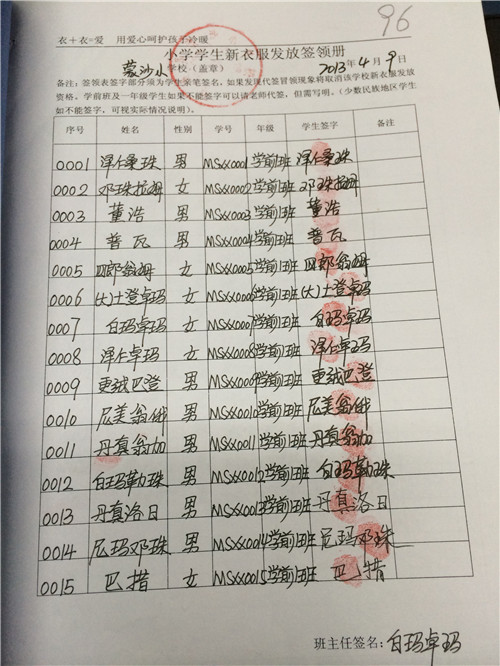 96
衣+衣=爱 用爱心呵护孩子冷暖
小学学生新衣服发放签领册
蒙沙小学校(盖章) 2013年4月9日
备注:签领表签字部分须为学生亲笔签名,如果发现代签冒领现象将取消该学校新衣服发放
资格。学前班及一年级学生如果不能签字可以请老师代签,但需写明。(少数民族地区学生
如不能签字,可视实际情况说明)。
序号 姓名 性别 学号 年级 学生签字 备注
0001 泽仁桑珠 男 MSXX0001 学前班 泽仁桑珠
0002 邓珠拉姆 女 MSXX0002 学前班 邓珠拉姆
0003 董浩 男 MSXX0003 学前班 董浩
0004 普瓦 男 MSXX0004 学前班 普瓦
0005 四郎翁姆 女 MSXX0005 学前班 四郎翁姆
0006 (大)土登卓玛 女 MSXX0006 学前班 (大)土登卓玛
0007 白玛卓玛 女 MSXX0007 学前班 白玛卓玛
0008 泽仁卓玛 女 MSXX0008 学前班 泽仁卓玛
0009 更绒巴登 男 MSXX0009 学前班 更绒巴登
0010 尼美翁 男 MSXX0010 学前班 尼美翁
0011 丹真翁加 男 MSXX0011 学前班 丹真翁加
0012 白玛勒珠 男 MSXX0012 学前班 白玛勒珠
0013 丹真洛日 男 MSXX0013 学前班 丹真洛日
0014 尼玛邓珠 男 MSXX0014 学前班 尼玛邓珠
0015 巴措 女 MSXX0015 学前班 巴措
班主任签名:白玛卓玛